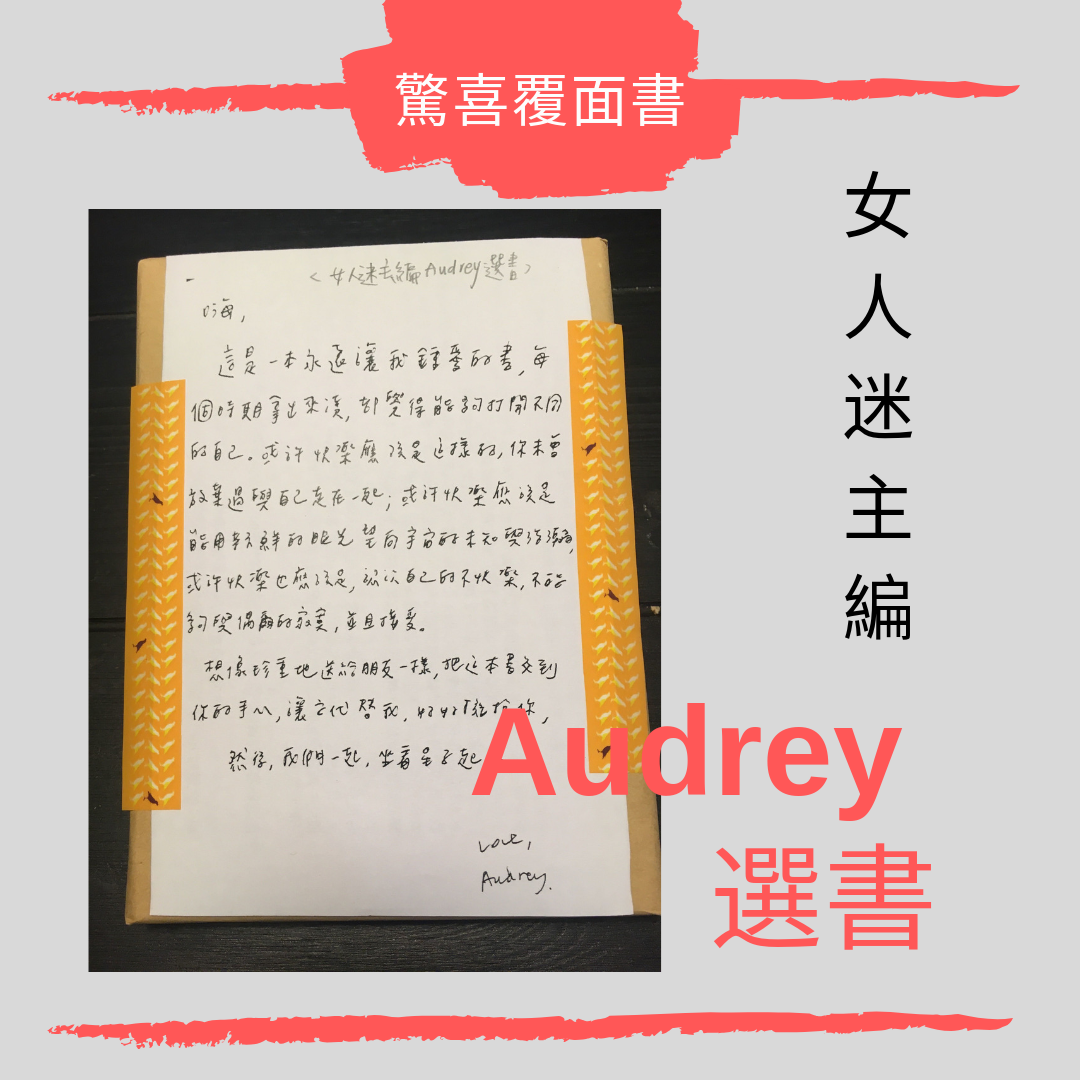 驚喜覆面書
女人迷主編
Audrey
選書
<女人迷主編Audrey選書>
嗨,
這是一本永遠讓我鍾愛的書,每
個時期拿出來讀,都覺得能夠打開不同
的自己。或許快樂應該是這樣的,你未曾
放棄過與自己走在一起;或許快樂應該是
能用新鮮的眼光望向宇宙的未知與浩瀚,
或許快樂也應該是,承認自己的不快樂,不能
夠與偶爾的寂寞,並且擁愛。
想像珍重地送給朋友一樣,把這本書交到
你的手心,讓它代替我,好好擁抱你,
然後,我們一起,坐看雲起
Love,
Audrey.